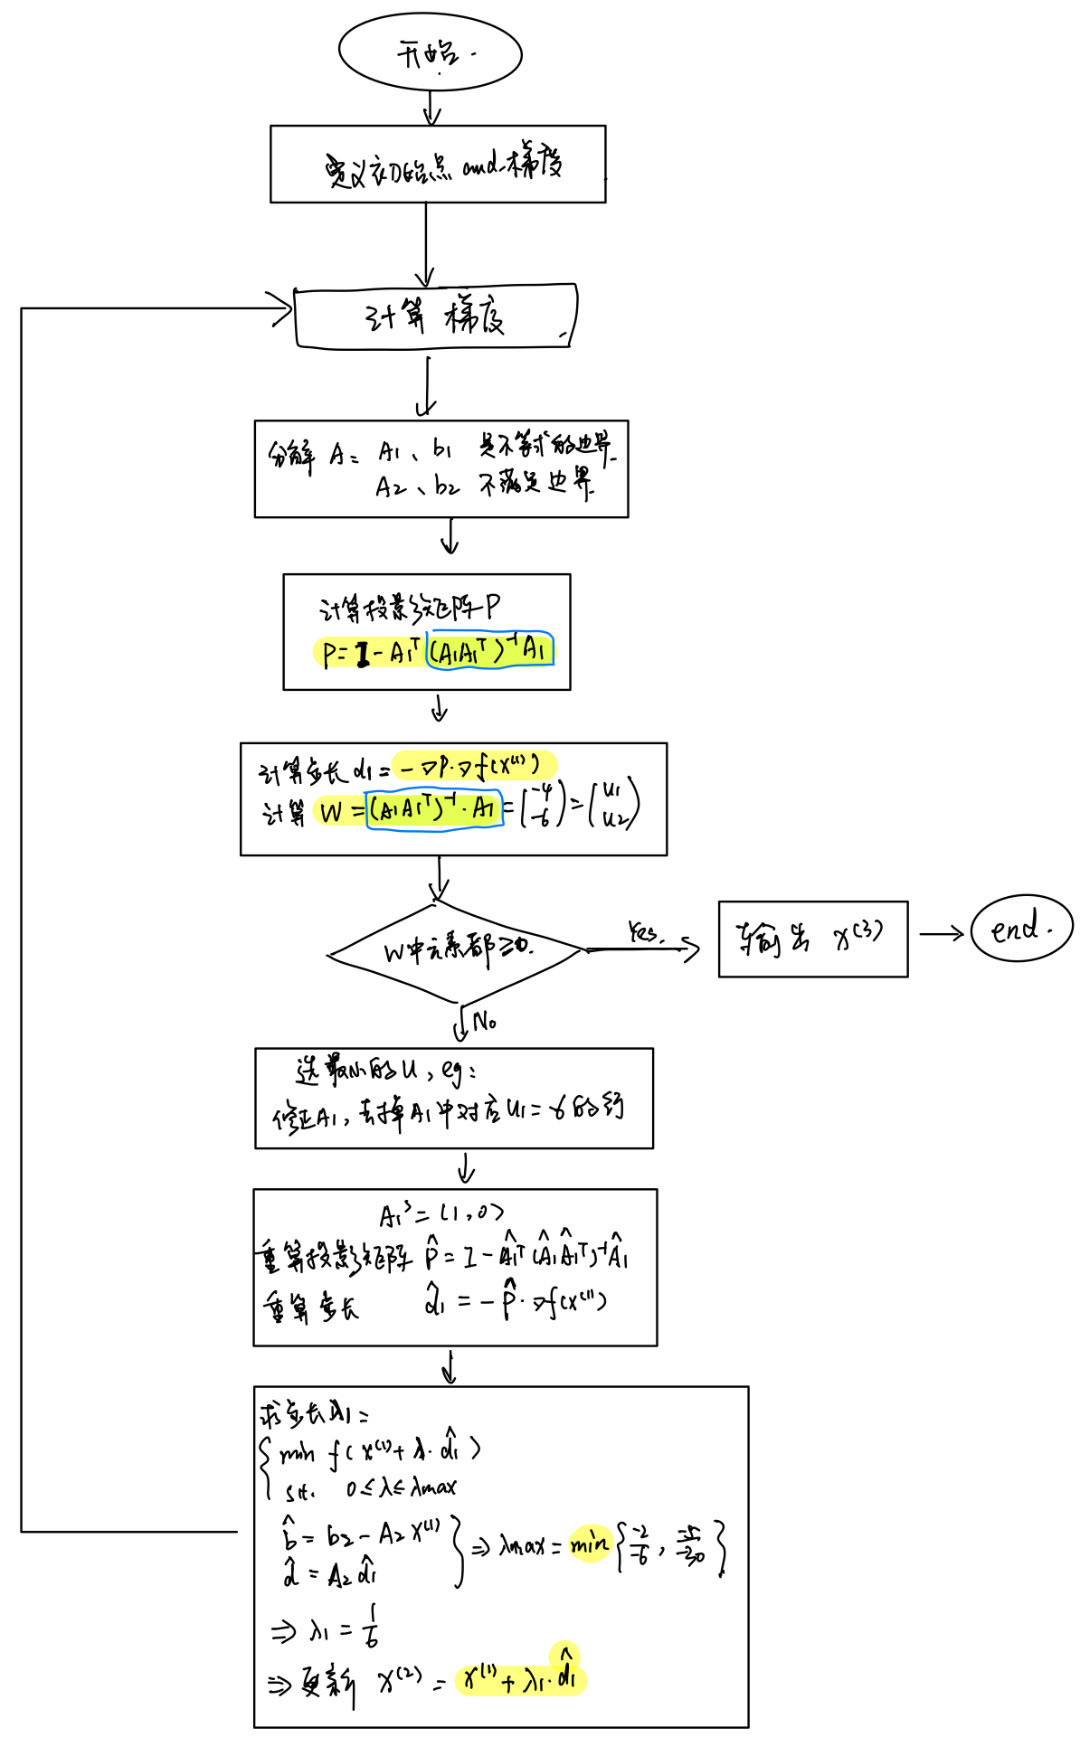 开始.
定义初始点 and 梯度
计算 梯度
分解 A = A1、b1 是不等式的边界.
A2、b2 不满足边界.
计算投影矩阵P
P = I - A1ᵀ (A1A1ᵀ)⁻¹ A1
计算步长 d1 = - ▽P·▽f(x⁽¹⁾)
计算 W = (A1A1ᵀ)⁻¹·A1 = (-4 -6) = (u1 u2)
W中元素都≥0.
Yes.
输出 x⁽³⁾
end.
No
选最小的u, eg:
修正A1, 去掉A1中对应u1=-6的行
A1³ = (1, 0)
重算投影矩阵 P̂ = I - Â1ᵀ (Â1Â1ᵀ)⁻¹Â1
重算步长 d̂1 = - P̂·▽f(x⁽¹⁾)
求步长λ1 =
min f(x⁽¹⁾ + λ·d̂1)
s.t. 0 ≤ λ ≤ λmax
b̂ = b2 - A2 x⁽¹⁾
d̂ = A2 d̂1
⇒ λmax = min { -2/-6 , -5/-30 }
⇒ λ1 = 1/6
⇒ 更新 x⁽²⁾ = x⁽¹⁾ + λ1·d̂1